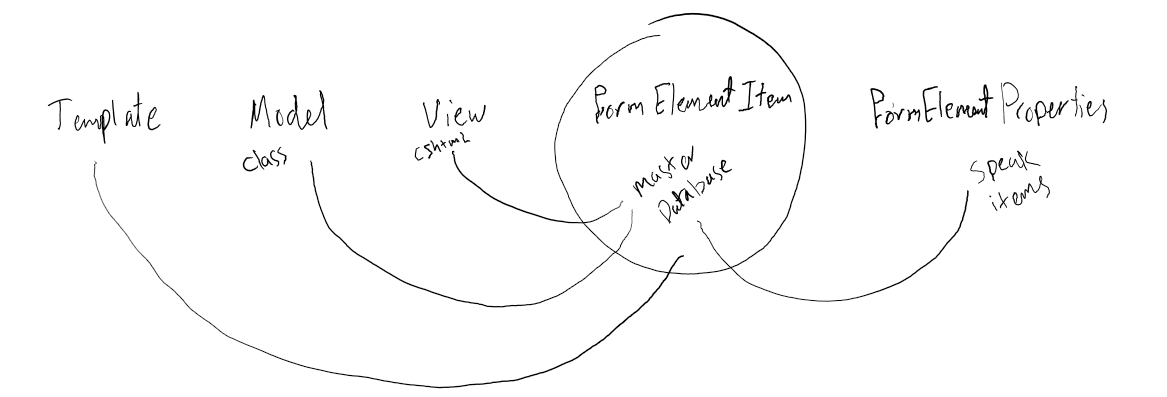 Template
Model
class
View
cshtml
Form Element Item
master
Database
FormElement Properties
Speak
items